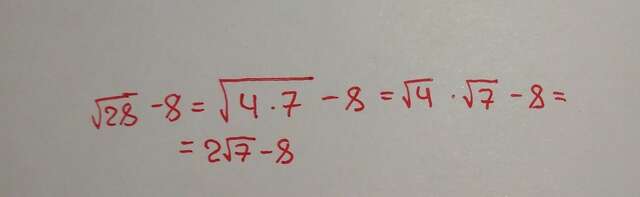 √28 - 8 = √4·7 - 8 = √4 · √7 - 8 =
= 2√7 - 8